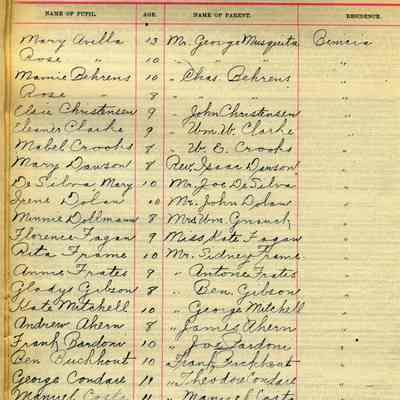 NAME OF PUPIL. AGE. NAME OF PARENT. RESIDENCE.
Mary Avilla 13 Mr. George Musquita Benicia
Rose " 10 " " "
Mamie Behrens 10 " Chas. Behrens "
Rose " 8 " " "
Elsie Christensen 9 " John Christensen "
Eleanor Clarke 9 " Wm. W. Clarke "
Mabel Crooks 8 " W. E. Crooks "
Mary Dawson 8 Rev. Isaac Dawson "
De Silva, Mary 10 Mr. Joe De Silva "
Irene Dolan 10 Mr. John Dolan "
Minnie Dollmann 8 Mrs Wm. "
Florence Fagan 9 Miss Kate Fagan "
Rita Frame 10 Mr. Sidney Frame "
Annie Frates 9 " Antone Frates "
Gladys Gibson 8 " Ben. Gibson "
Kate Mitchell 10 " George Mitchell "
Andrew Ahern 8 " James Ahern "
Frank Bardoni 10 " Joe Bardoni "
Ben Buchhout 10 Frank Buckhout "
George Condare 11 " Theodore Condare "
Manuel Costa 11 " Manuel Costa "